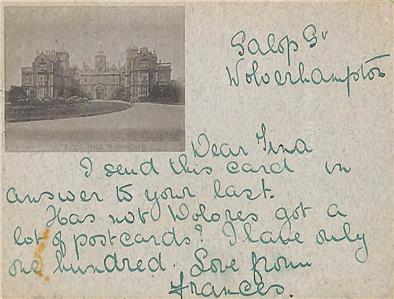 Salop St
Wolverhampton
ASTON HALL, BIRMINGHAM
Dear Tina
I send this card in
answer to your last.
Has not Dolores got a
lot of postcards? I have only
one hundred. Love from
Frances.